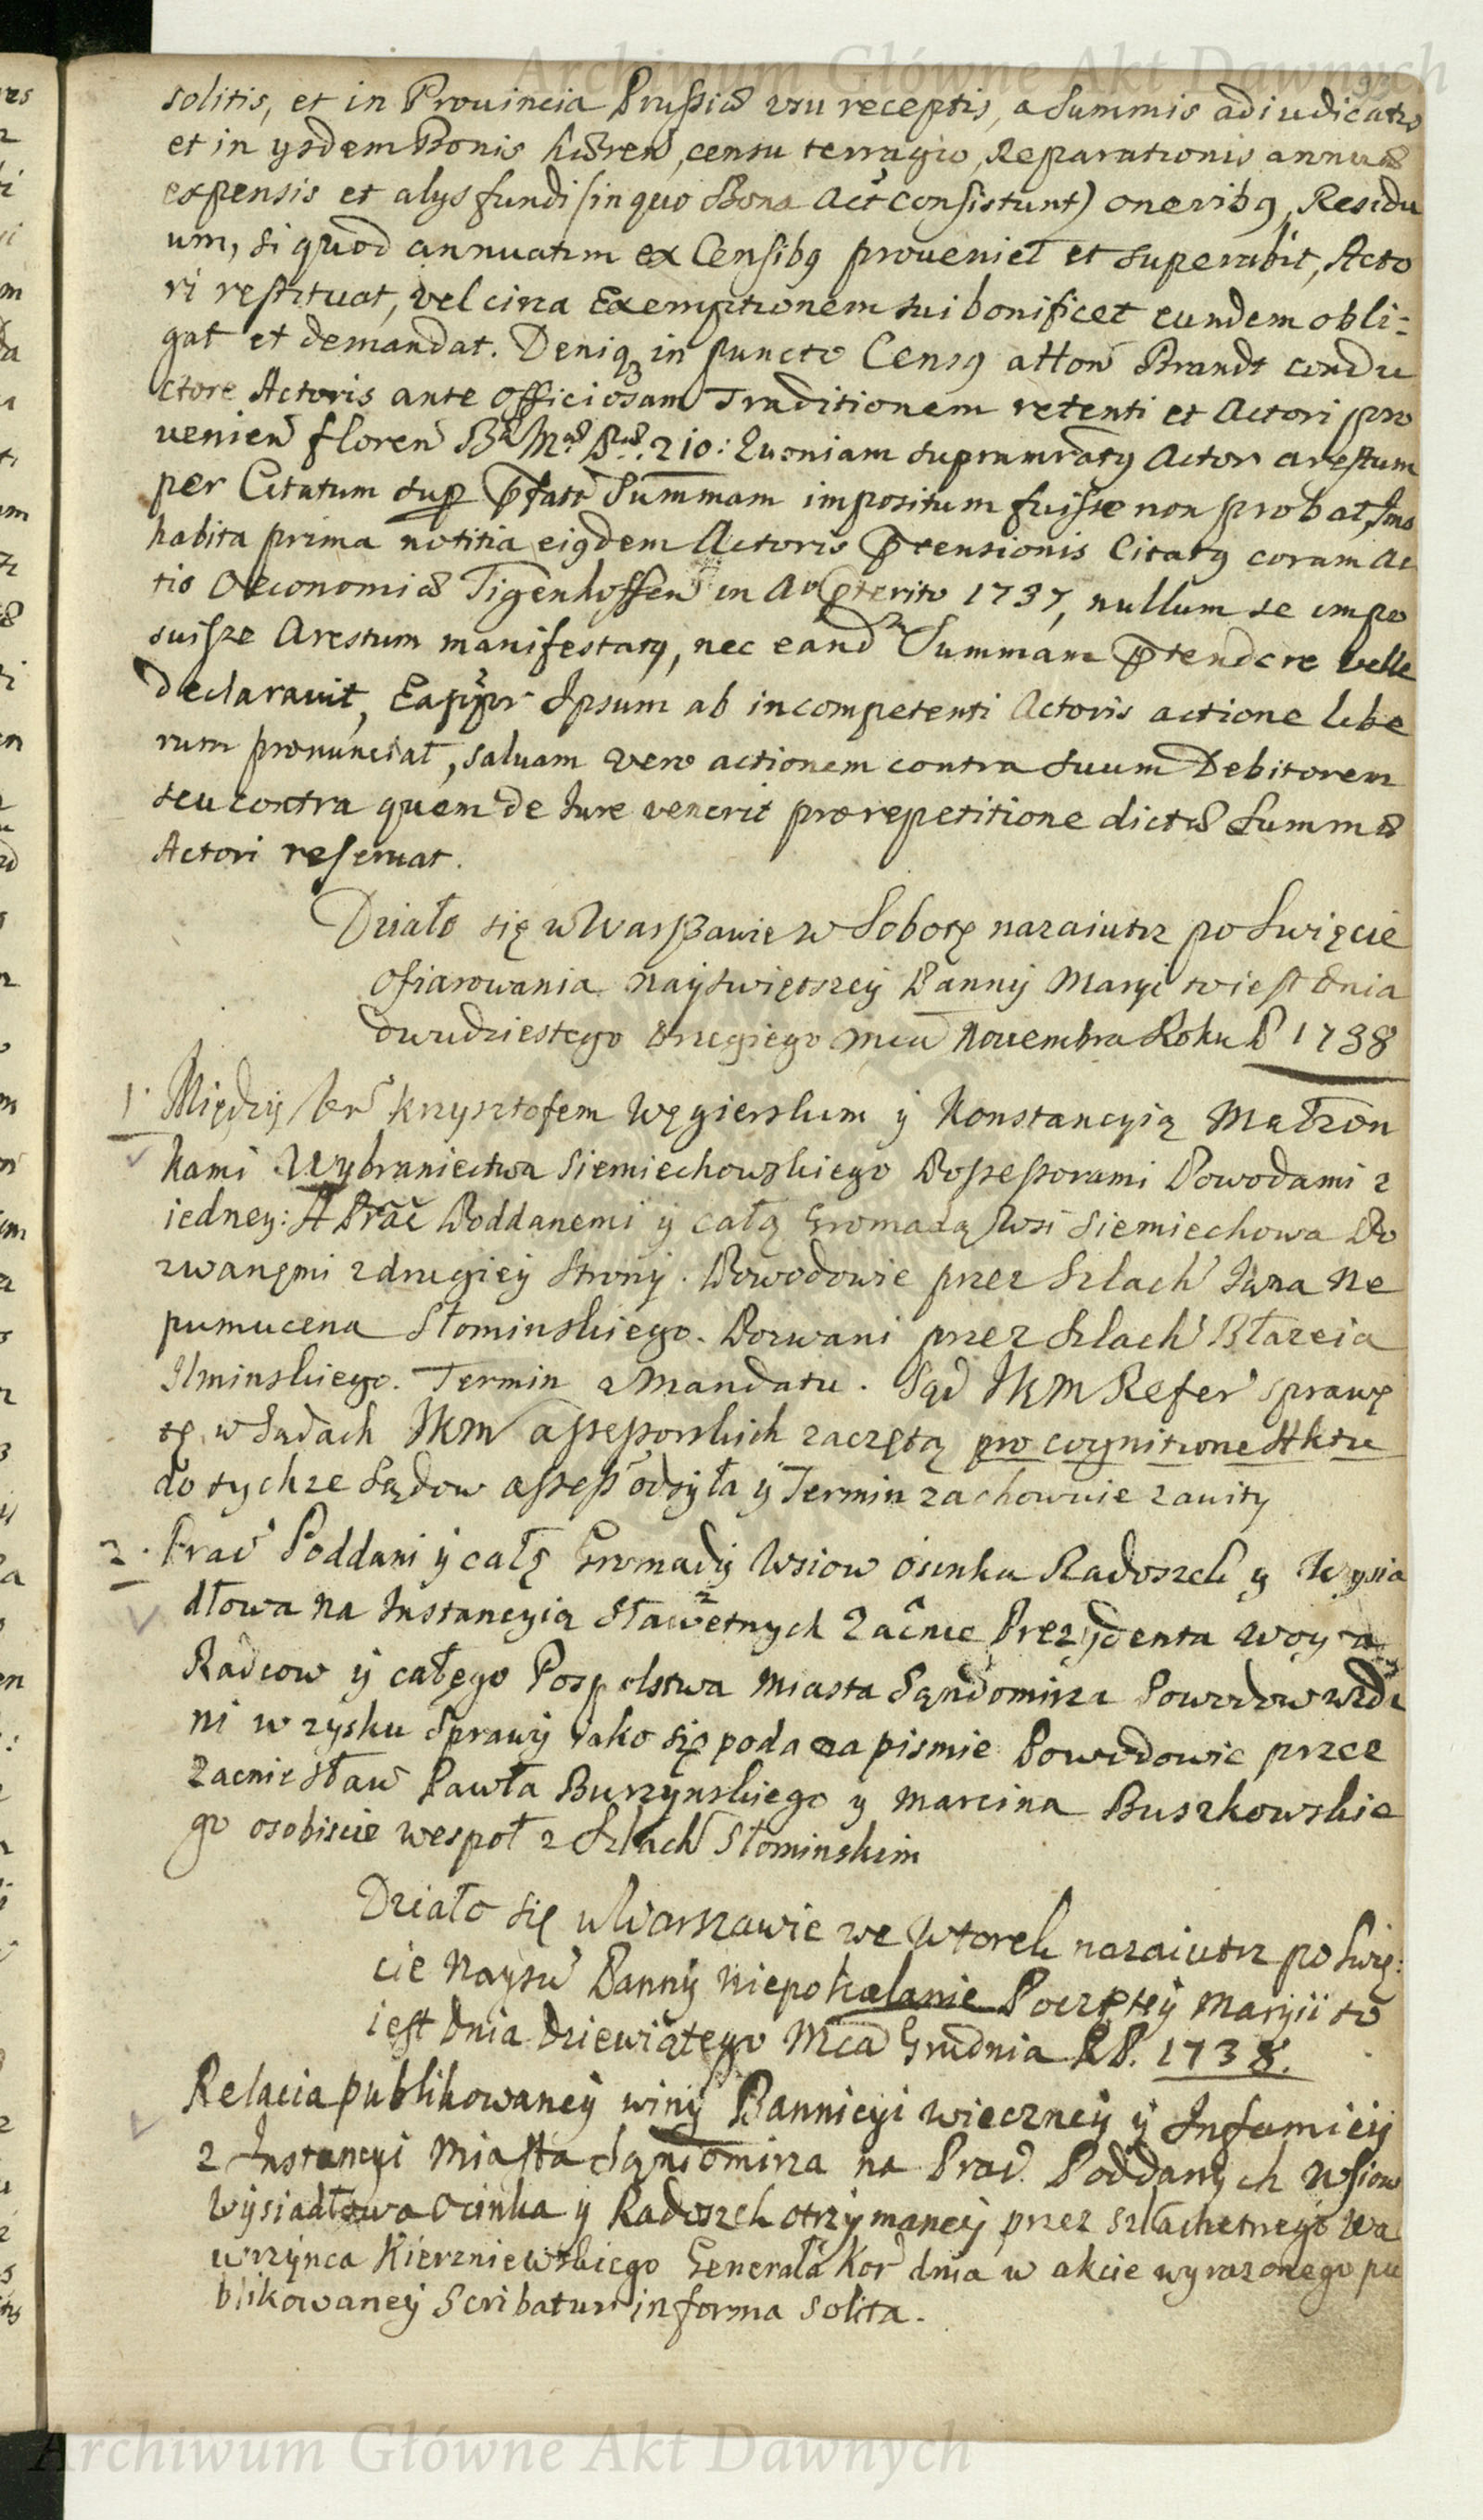 Archiwum Główne Akt Dawnych
93
solitis, et in Prouincia Prussiæ usu receptis, a Summis adiudicatis
et in ysdem Bonis hæren̄, censu terragio, Reparationis annuæ
expensis et alys fundi (in quo Bona Act̄ consistunt) oneribꝯ, Residu
um, si quod annuatim ex Censibꝯ proueniet et superabit, Acto
ri restituat, vel circa Exemptionem sui bonificet eundem obli=
gat et demandat. Deniqꝫ in puncto Censꝯ a Hon̄ Brandt condu
ctore Actoris ante officiosam Traditionem retenti et Actori pro
uenien̄ floren̄ 210: Quoniam supranratꝯ Actor arestum
per Citatum sup̄ p̄fatā Summam impositum fuisse non probat, Imo
habita prima notitia eiꝯdem Actoris p̄tensionis Citatꝯ coram Ac
tis Oeconomiæ Tigenhoffen̄ in Ao p̄terito 1737, nullum se impo
suisse Arestum manifestatꝯ, nec eand̄ Summam p̄tendere velle
declarauit, Eapp̄r Ipsum ab incompetenti Actoris actione libe
rum pronunciat, saluam vero actionem contra suum Debitorem
seu contra quem de Iure venerit pro repetitione dictæ Summæ
Actori reseruat.
Działo się w Warszawie w Sobotę nazaiutrz po Swięcie
Ofiarowania Nayswiętszey Panny Maryi to iest dnia
dwudziestego drugiego Mca Nouembra Roku P 1738
1. Między Ur̄ Krzysztofem Węgierskim y Konstancyią Małzon
kami Wybraniectwa Siemiechowskiego Possessorami Powodami z
iedney: A Prac̄ Poddanemi y całą Gromadą Wsi Siemiechowa Po
zwanęmi z drugiey Strony. Powodowie przez Szlach̄ Iana Ne
pumucena Słominskiego. Pozwani przez Szlach̄ Błazeia
Ilminskiego. Termin z Mandatu. Sąd JKM Refer̄ sprawę
tę w Sadach JKM assessorskich zaczętą pro cognitione Aktu
do tychze Sądow assess̄ odsyła y Termin zachowuie zawity
2. Prac̄ Poddani y całę Gromady Wsiow Osinka Radoszek y Wysia
dłowa na Instancyią Sławetnych Zacnie Prezydenta Woyta
Radcow y całęgo Pospolstwa Miasta Sąndomirza Powodow wzda
ni w zysku Sprawy iako się poda na pismie Powodowie przez
Zacnie Sław Pawła Burzynskiego y Marcina Buszkowskie
go osobiscie wespoł z Szlach̄ Słominskim
Działo się w Warszawie we Wtorek nazaiutrz po Swię:
cie Naysw̄ Panny Niepokalanie Poczętey Maryii to
iest Dnia Dziewiątego Mca Grudnia RP. 1738.
Relacia publikowaney winy Bannicyi wieczney y Infamiey
z Instancyi Miasta Sąndomirza na Prac̄. Poddanych Wsiow
Wysiadłowa Ocinka y Radoszek otrzymaney przez Szlachetnego Wa
wrzynca Kierzniewskiego Generała Kor̄ dnia w akcie wyrazonego pu
blikowaney Scribatur in forma solita.
Archiwum Główne Akt Dawnych